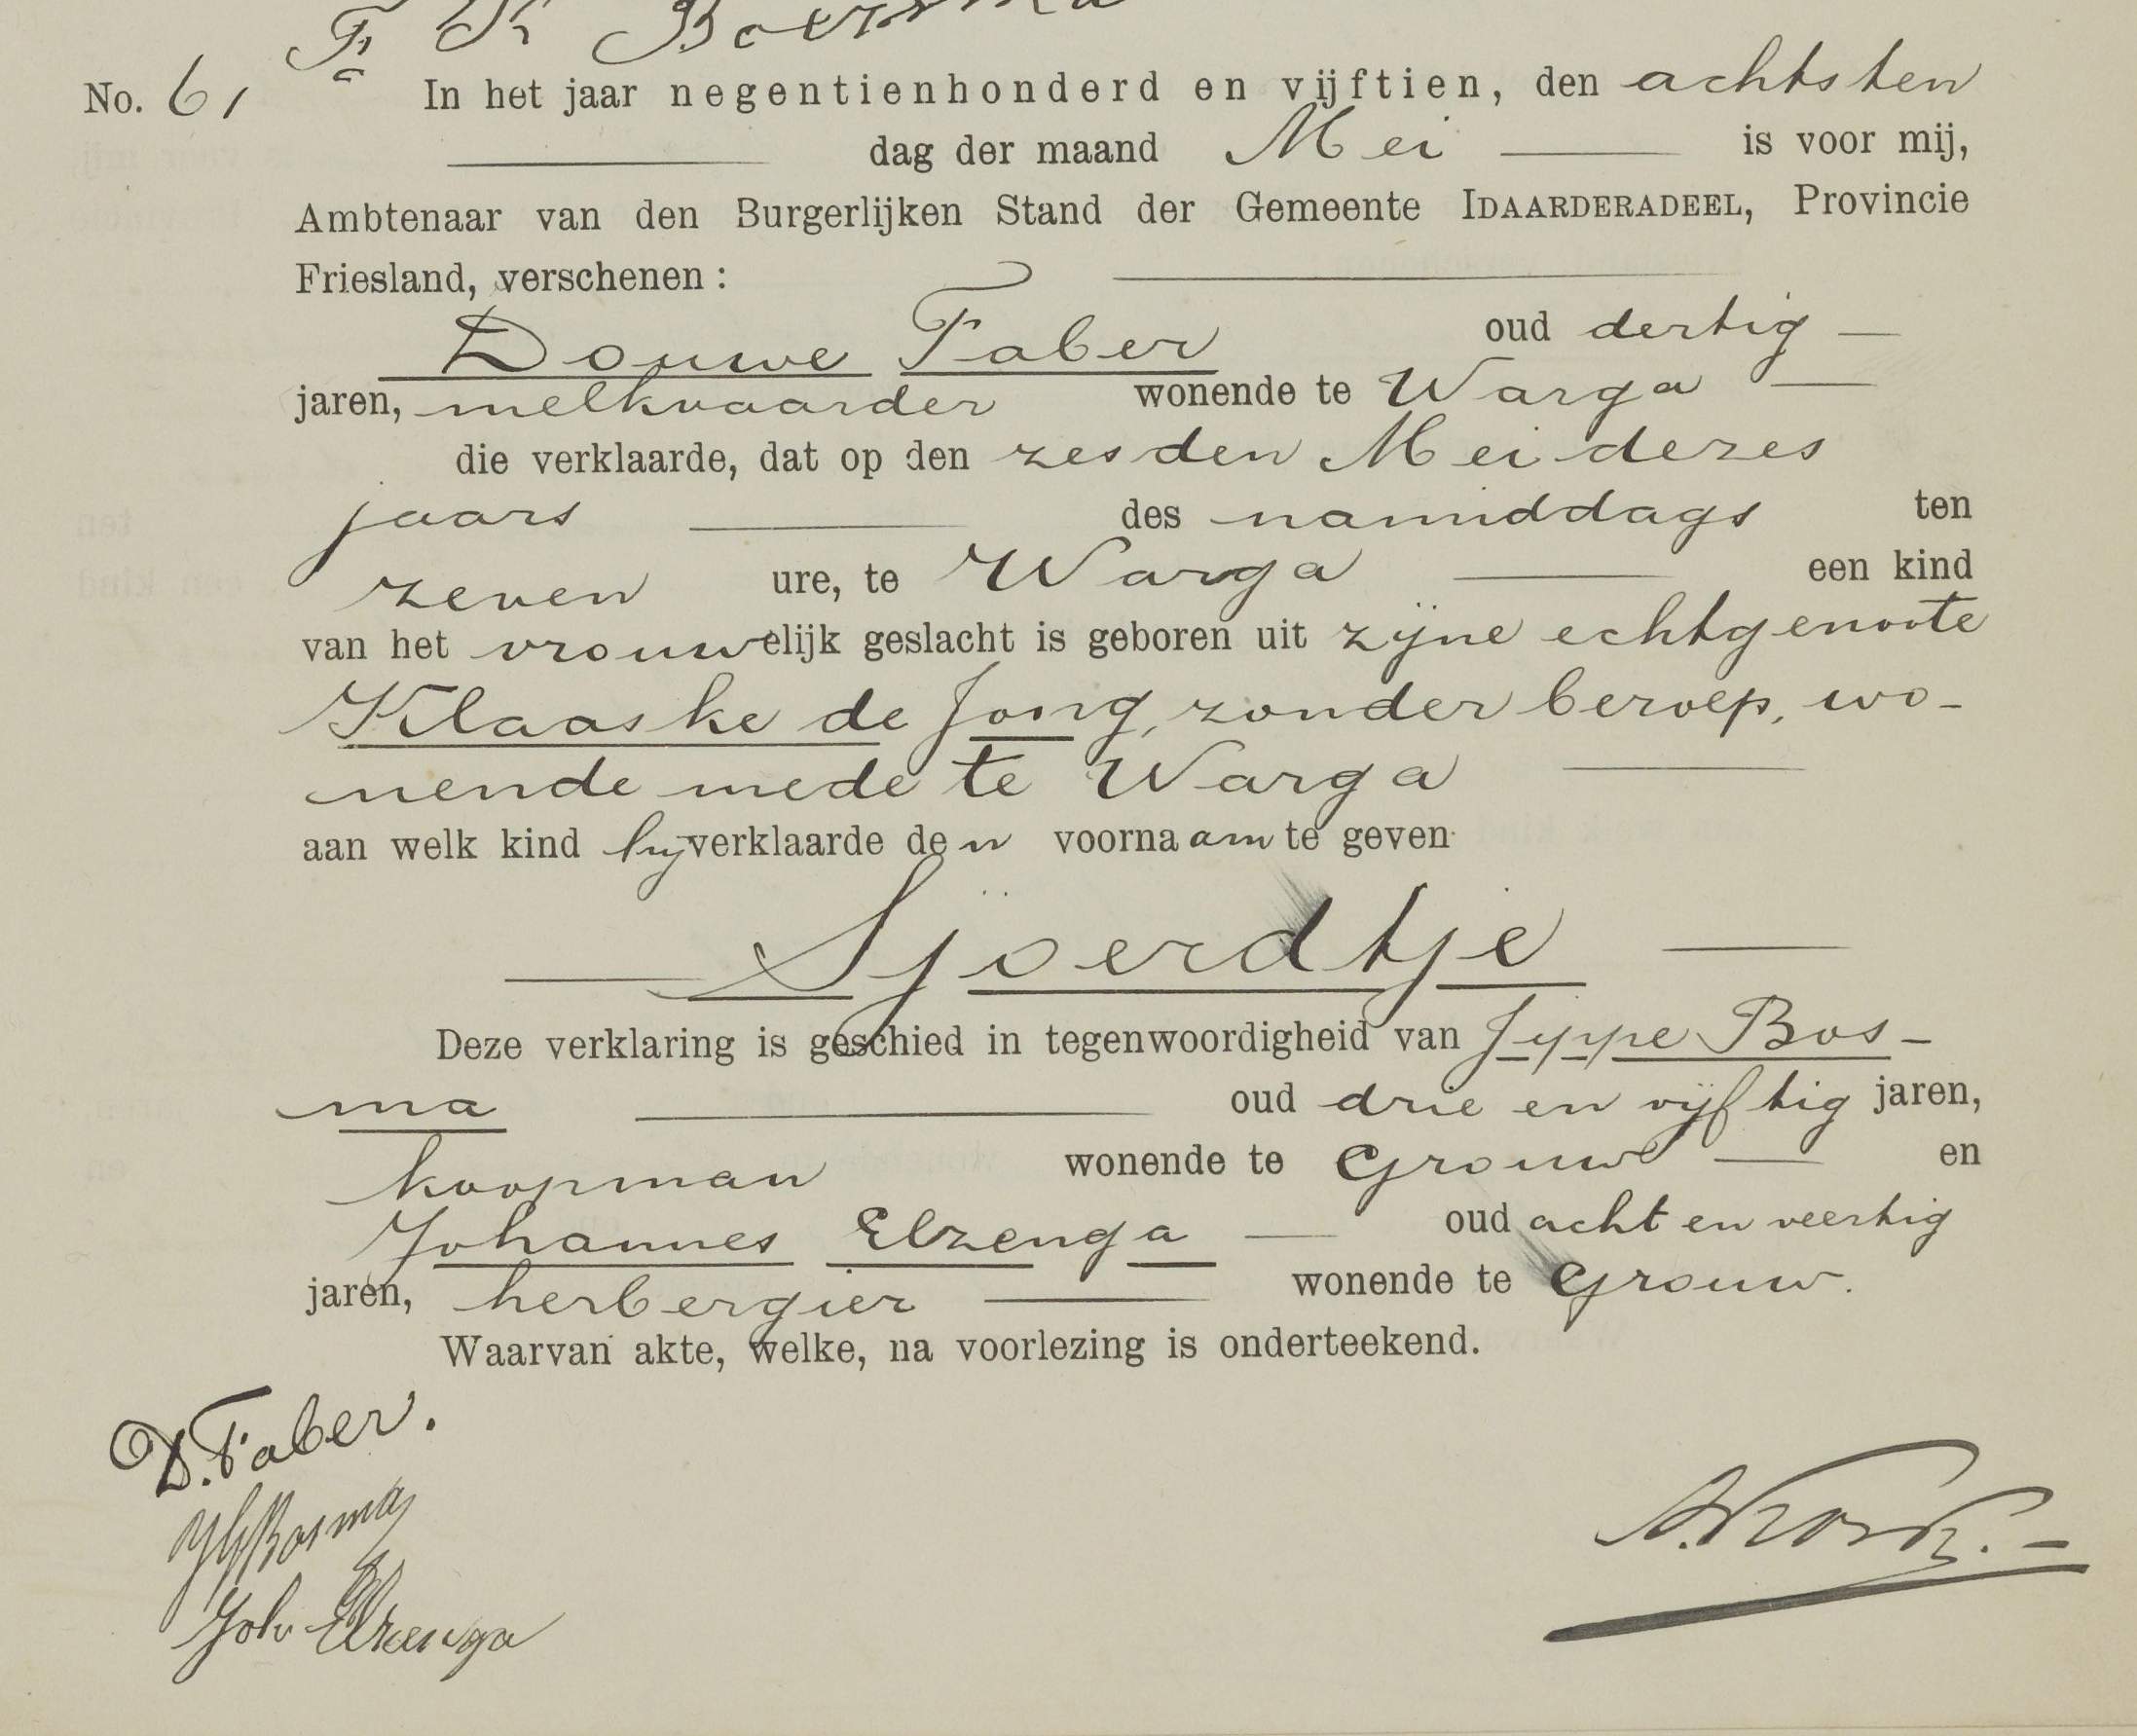 F K Boersma
No. 61 In het jaar negentienhonderd en vijftien, den achtsten
dag der maand Mei is voor mij,
Ambtenaar van den Burgerlijken Stand der Gemeente IDAARDERADEEL, Provincie
Friesland, verschenen :
Douwe Faber oud dertig
jaren, melkvaarder wonende te Warga
die verklaarde, dat op den zesden Mei dezes
jaars des namiddags ten
zeven ure, te Warga een kind
van het vrouwelijk geslacht is geboren uit zijne echtgenoote
Klaaske de Jong, zonder beroep, wo-
nende mede te Warga
aan welk kind hij verklaarde den voornaam te geven
Sjoerdtje
Deze verklaring is geschied in tegenwoordigheid van Jyppe Bos-
ma oud drie en vijftig jaren,
koopman wonende te Grouw en
Johannes Elzenga oud acht en veertig
jaren, herbergier wonende te Grouw.
Waarvan akte, welke, na voorlezing is onderteekend.
D. Faber.
Bosma
Joh Elzenga